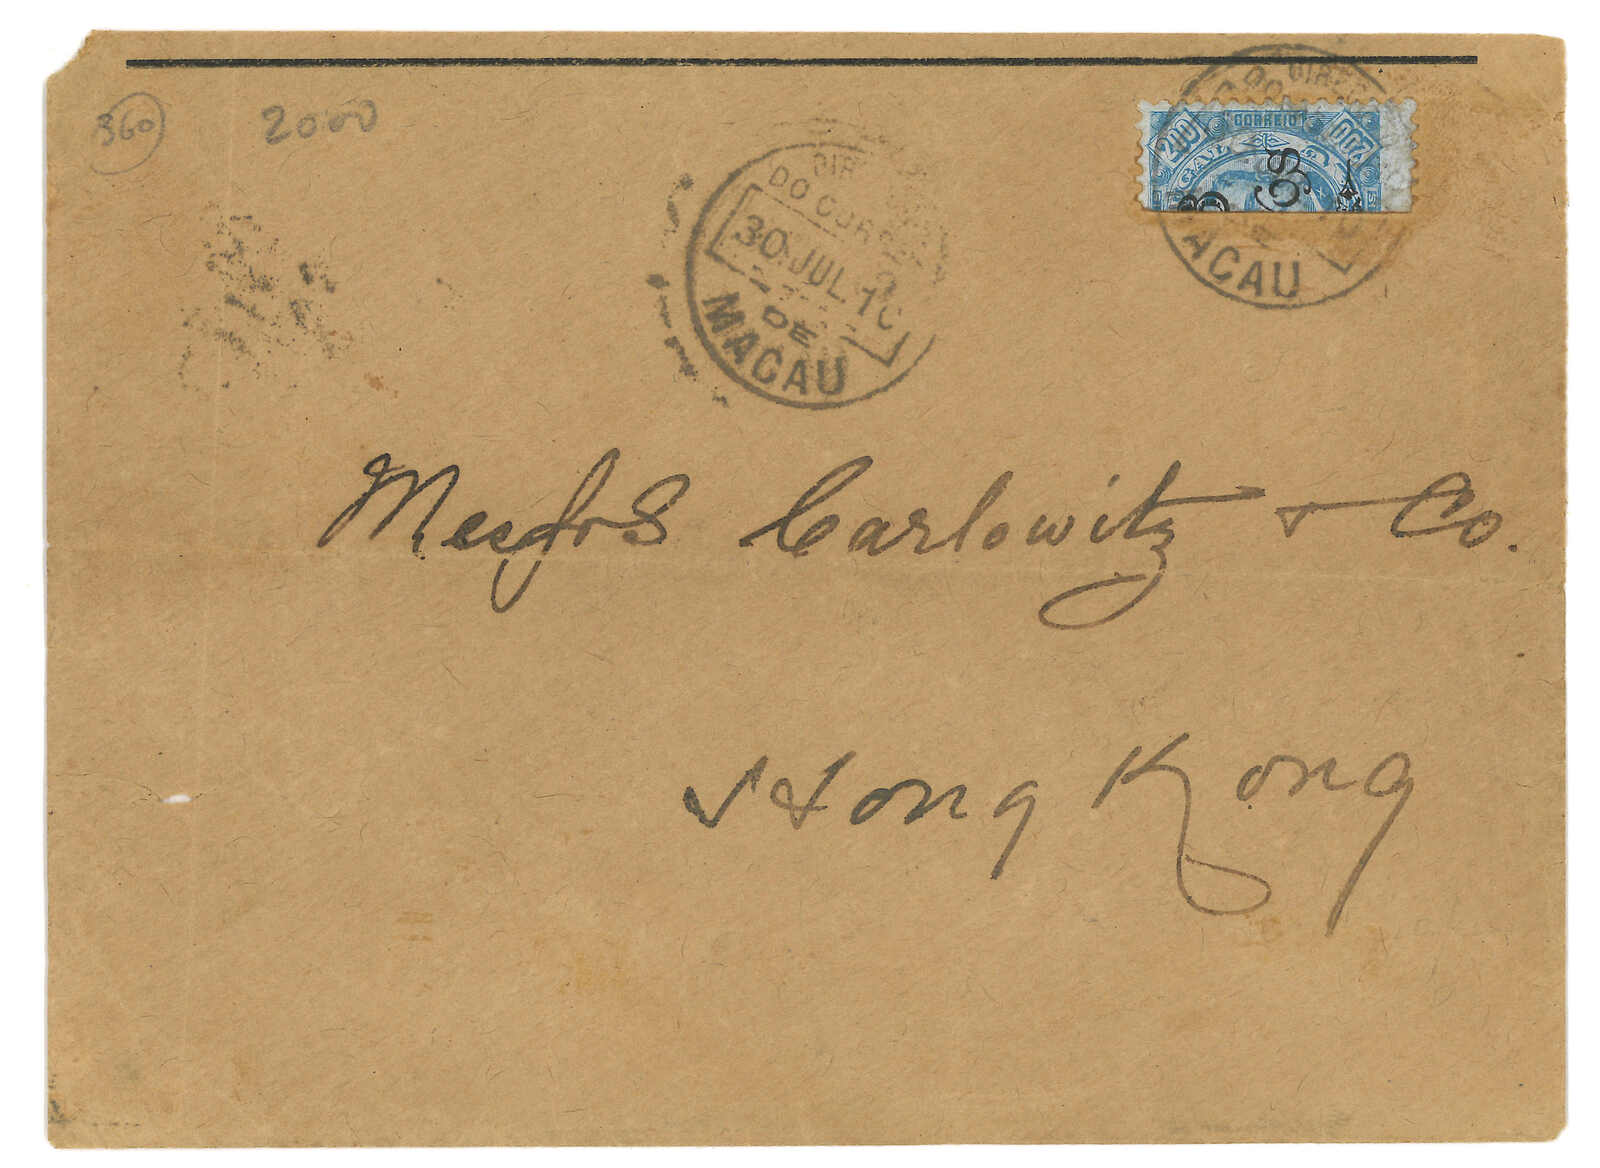 360
2000
DO CORREIO
30 JUL. 10
DE
MACAU
200 CORREIO 200
MACAU
Messrs Carlowitz & Co.
Hong Kong